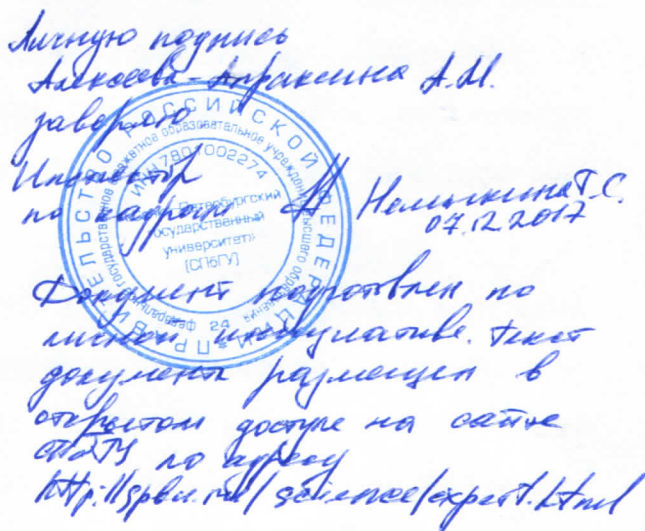 Личную подпись
Алексеева-Апраксина А.М.
заверяю
Инспектор
по кадрам
Немыкина Т.С.
07.12.2017
ПРАВИТЕЛЬСТВО РОССИЙСКОЙ ФЕДЕРАЦИИ
федеральное государственное бюджетное образовательное учреждение высшего образования
ИНН 7801002274
Петербургский
государственный
университет»
[СПбГУ]
24
Документ подготовлен по
личной инициативе. Текст
документа размещен в
открытом доступе на сайте
СПбГУ по адресу
http://spbu.ru/science/expert.html